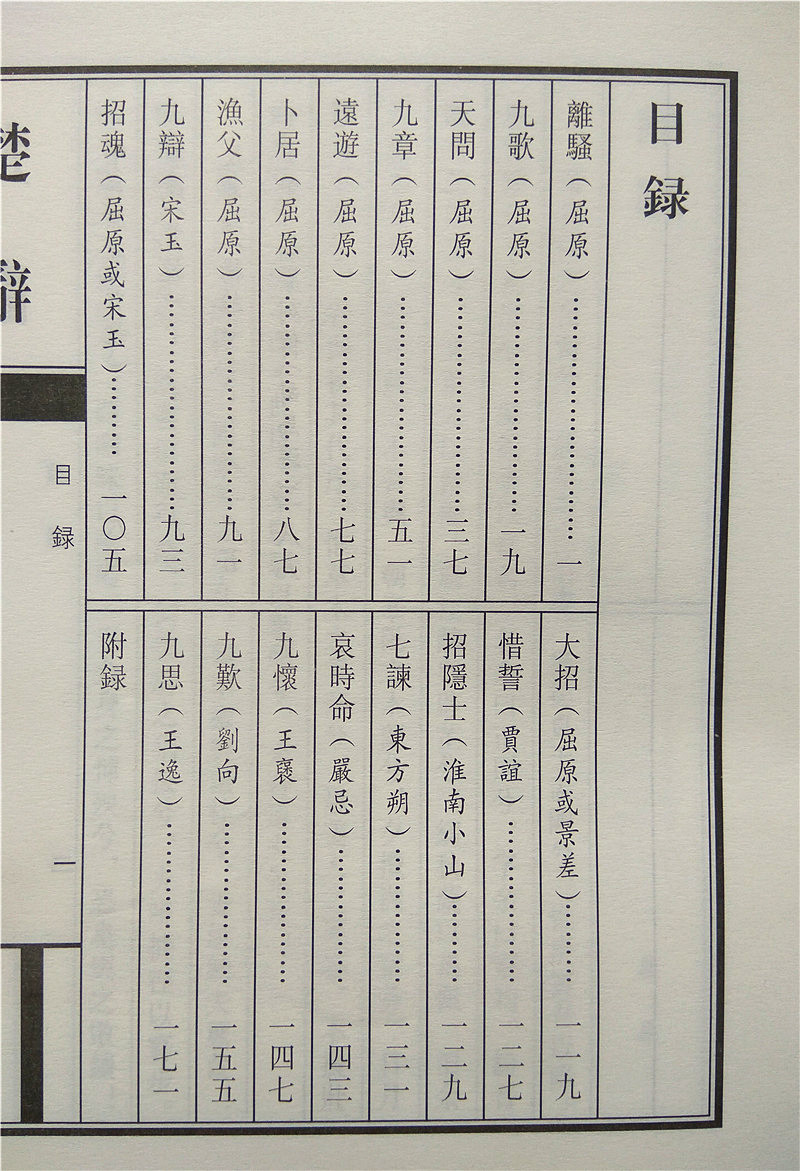 目録
離騷（屈原）……………………一
九歌（屈原）……………………一九
天問（屈原）……………………三七
九章（屈原）……………………五一
遠遊（屈原）……………………七七
卜居（屈原）……………………八七
漁父（屈原）……………………九一
九辯（宋玉）……………………九三
招魂（屈原或宋玉）…………一〇五
大招（屈原或景差）…………一一九
惜誓（賈誼）……………………一二七
招隱士（淮南小山）…………一二九
七諫（東方朔）………………一三一
哀時命（嚴忌）………………一四三
九懷（王襃）……………………一四七
九歎（劉向）……………………一五五
九思（王逸）……………………一七一
附録
楚辭
目録
一